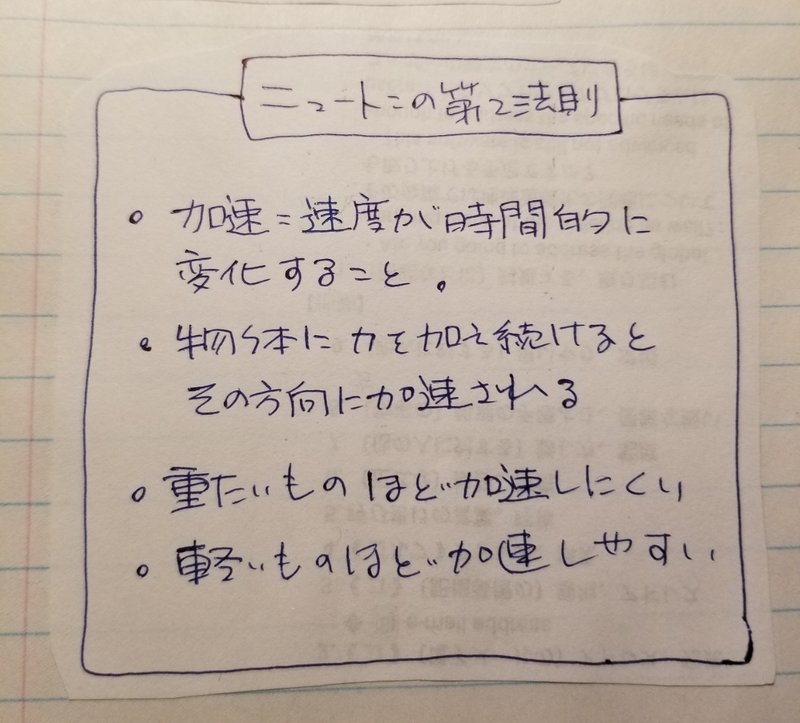 ニュートンの第2法則
• 加速=速度が時間的に
変化すること。
• 物体に力を加え続けると
その方向に加速される
• 重たいものほど加速しにくい
• 軽いものほど加速しやすい